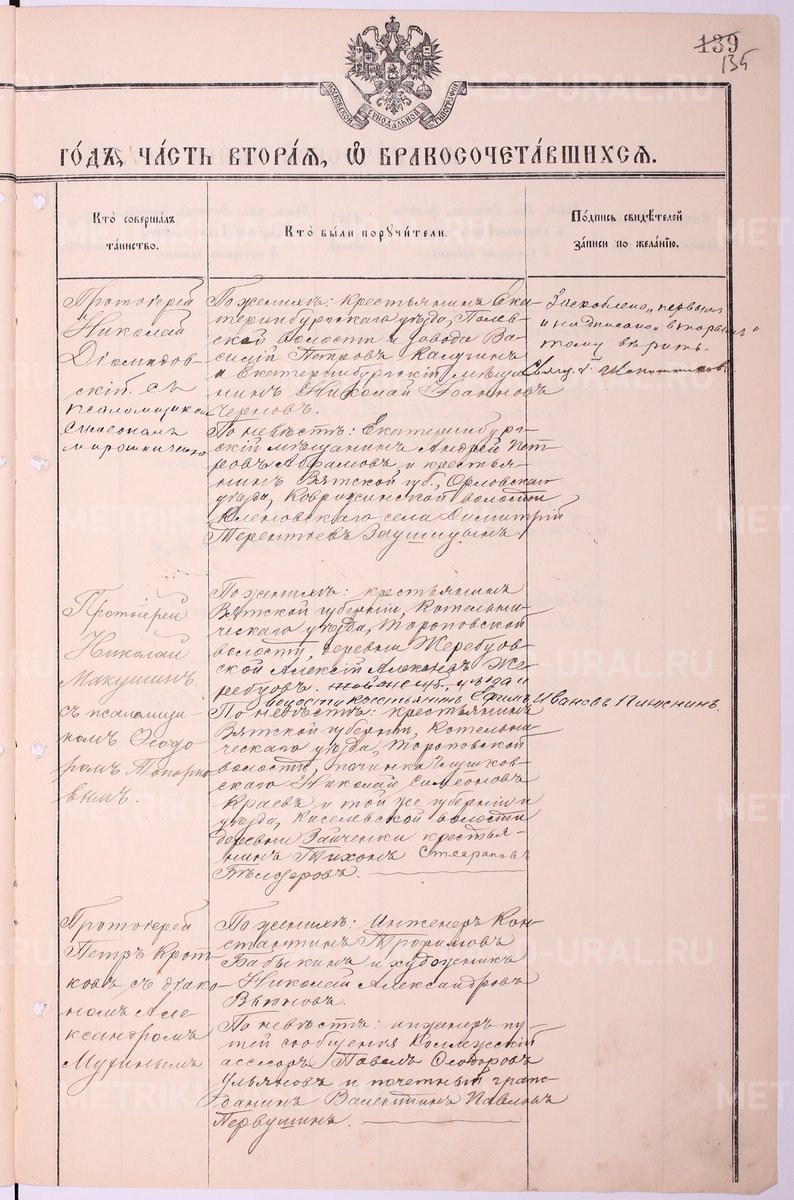 139
135
МОСКОВСКОЙ СѴНОДАЛЬНОЙ ТИПОГРАФІИ
ГО́ДЪ, ЧА́СТЬ ВТОРА́Я, Ѡ БРАКОСОЧЕТА́ВШИХСЯ.
Кто̀ соверша́лъ
та́инство.
Кто̀ бы́ли порꙋчи́тели.
По́дпись свидѣ́телей
за́писи по жела́нію.
Протоіерей
Николай
Діомидов-
скій съ
псаломщикомъ
Симеономъ
Мирошниченко
По женихѣ: крестьянинъ Ека-
теринбургскаго уѣзда, Полев-
ской волости и завода Ва-
силій Петровъ Калугинъ
и Екатеринбургскій мѣща-
нинъ Николай Іоанновъ
Черновъ.
По невѣстѣ: Екатеринбург-
скій мѣщанинъ Андрей Пет-
ровъ Абрамовъ и крестья-
нинъ Вятской губ., Орловскаго
уѣзда, Коврижинской волости
села Димитрій
Терентіевъ
Заскоблено „первымъ
и надписано „вторымъ"
тому вѣрить.
Свящ. І.
Протоіерей
Николай
Макушинъ
съ псаломщи-
комъ Ѳеодо-
ромъ Топорко-
вымъ.
По женихѣ: крестьянинъ
Вятской губерніи, Котельни-
ческаго уѣзда, Тороповской
волости, деревни Жеребцов-
ской Алексій Александровъ Же-
ребцовъ. той же губ., уѣзда и
волости крестьянинъ Ефимъ Ивановъ Плюснинъ.
По невѣстѣ: крестьянинъ
Вятской губерніи, Котельни-
ческаго уѣзда, Тороповской
волости, починка Глушков-
скаго Николай Симеоновъ
Краевъ и той же губерніи и
уѣзда, Киселевской волости
деревни Зайченки крестья-
нинъ Тихонъ Стефановъ
Бѣлозеровъ.
Протоіерей
Петръ Кротк-
ковъ съ діако-
номъ Але-
ксандромъ
Мухинымъ
По женихѣ: Инженеръ Кон-
стантинъ Трофимовъ
Бабыкинъ и художникъ
Николай Александровъ
Вьюновъ.
По невѣстѣ: инженеръ пу-
тей сообщенія Коллежскій
ассесоръ Павелъ Ѳеодоровъ
Ульяновъ и почетный граж-
данинъ Валентинъ Павловъ
Первушинъ.
METRIKI.UASO-URAL.RU